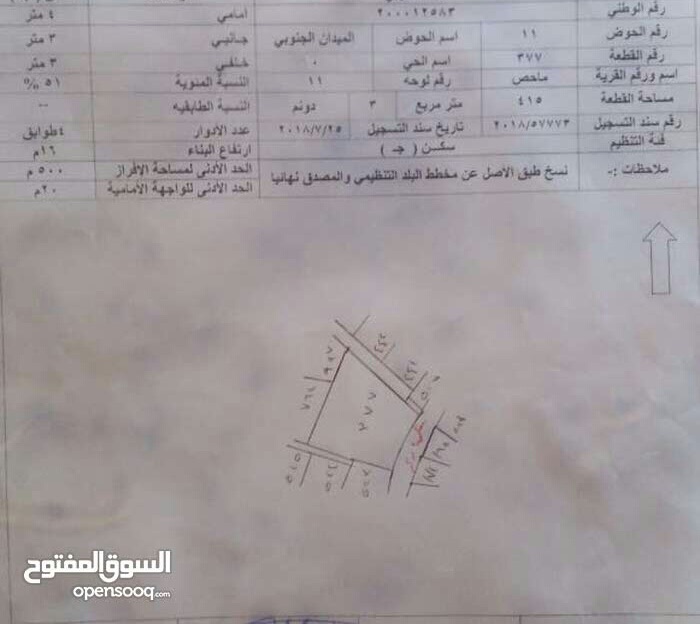 رقم الوطني ٢٠٠٠١٢٥٨٣ أمامي ٤ متر
رقم الحوض ١١ اسم الحوض الميدان الجنوبي جانبي ٣ متر
رقم القطعة ٣٧٧ اسم الحي ٠ خلفي ٣ متر
اسم ورقم القرية ماحص رقم لوحه ١١ النسبة المئوية ٥١ %
مساحة القطعة ٤١٥ متر مربع ٣ دونم النسبة الطابقيه --
رقم سند التسجيل ٢٠١٨/٥٧٧٧٣ تاريخ سند التسجيل ٢٠١٨/٧/٢٥ عدد الأدوار ٤طوابق
فئة التنظيم سكن ( جـ ) ارتفاع البناء ١٦م
ملاحظات :- نسخ طبق الأصل عن مخطط البلد التنظيمي والمصدق نهائيا الحد الأدنى لمساحة الإفراز ٥٠٠ م
الحد الأدنى للواجهة الأمامية ٢٠م
٣٧٧
السوق المفتوح
opensooq.com